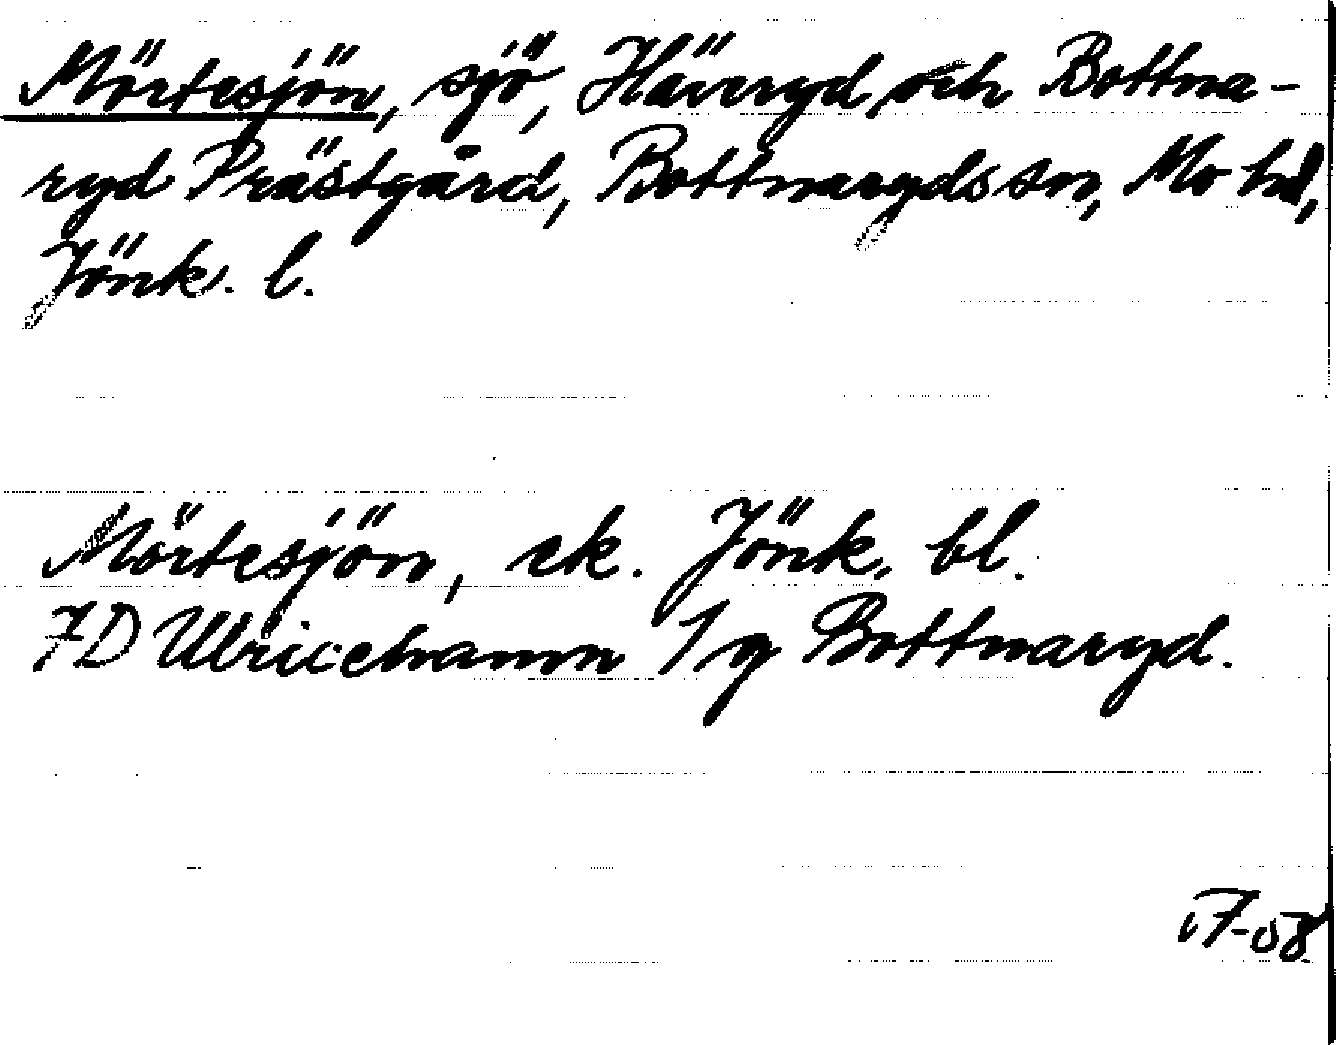 Mörtesjön, sjö, Häveryd och Bottna-
ryd Prästgård, Bottnaryds sn, Mo hd,
Jönk. l.
Mörtesjön, ek. Jönk. bl.
7D Ulricehamn 1 g Bottnaryd.